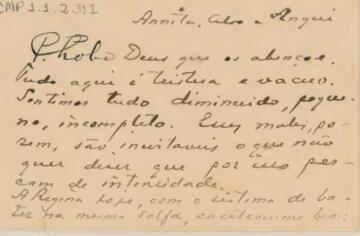 CMP 1.1.2.311
Annita, Celso e
Deus que os abençoe.
Tudo aqui é tristesa e vacuo.
Sentimos tudo diminuido, peque-
no, incompleto. Esses males, po-
rem, são inevitaveis o que não
quer dizer que por isso pe-
cam de intensidade.
A Regina hoje, com o sistema de ba-
ter na mesma solfa, cacetear-me bem: